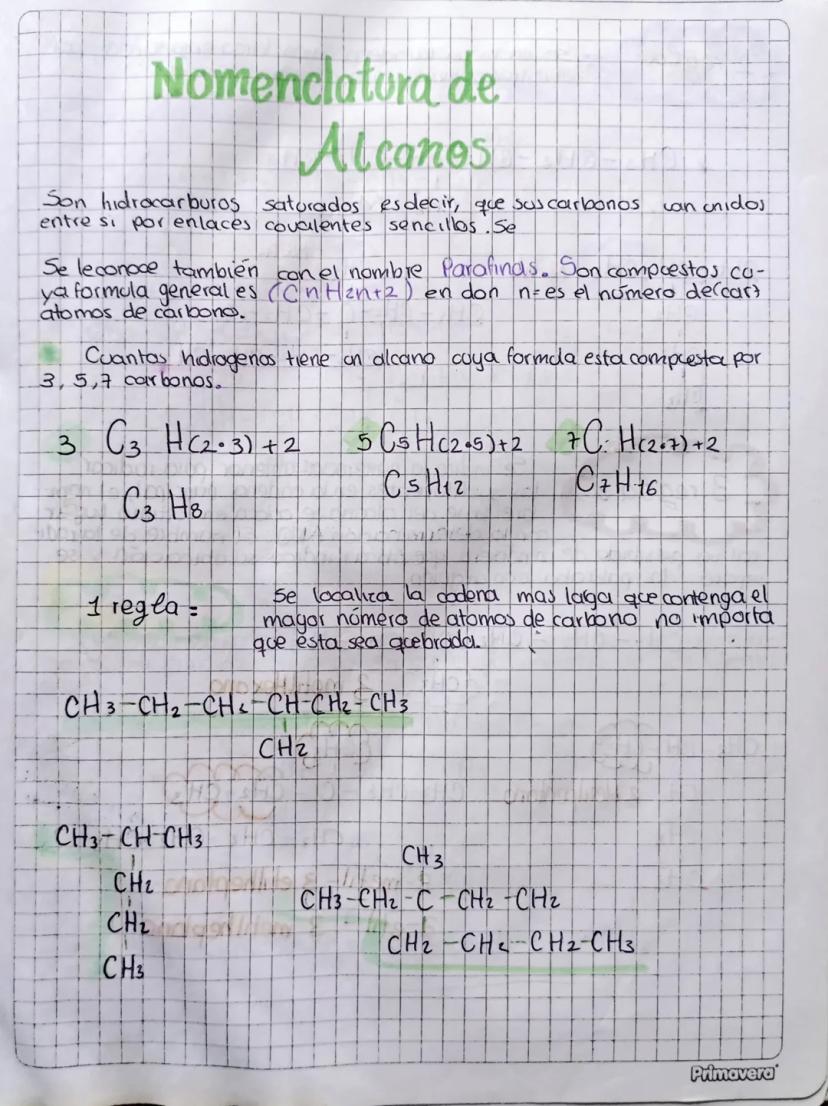 Nomenclatura de
Alcanos
Son hidrocarburos saturados es decir, que sus carbonos van unidos
entre si por enlaces covalentes sencillos. Se
Se le conoce también con el nombre Parafinas. Son compuestos cu-
ya formula general es (CnH2n+2) en don n= es el número de (car)
atomos de carbono.
Cuantos hidrogenos tiene un alcano cuya formula esta compuesta por
3, 5, 7 carbonos.
3 C3 H(2·3)+2 5 C5H(2·5)+2 7 C H(2·7)+2
C3 H8 C5H12 C7H16
1 regla = Se localiza la cadena mas larga que contenga el
mayor número de atomos de carbono no importa
que esta sea quebrada.
CH3-CH2-CH2-CH-CH2-CH3
CH2
CH3-CH-CH3
CH2
CH2
CH3
CH3
CH3-CH2-C-CH2-CH2
CH2-CH2-CH2-CH3
Primavera